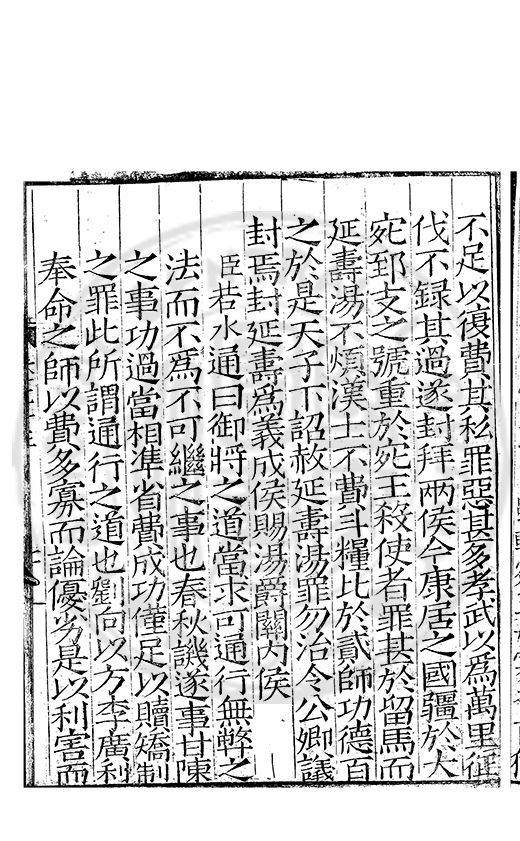 不足以復費其私罪惡甚多孝武以爲萬里征
伐不録其過遂封拜兩侯今康居之國疆於大
宛郅支之號重於宛王殺使者罪甚於留馬而
延壽湯不煩漢士不費斗糧比於貳師功德百
之於是天子下詔赦延壽湯罪勿治令公卿議
封焉封延壽爲義成侯賜湯爵關内侯
臣若水通曰御將之道當求可通行無弊之
法而不爲不可繼之事也春秋譏遂事甘陳
之事功過當相準省費成功僅足以贖矯制
之罪此所謂通行之道也劉向以方李廣利
奉命之師以費多寡而論優劣是以利害而